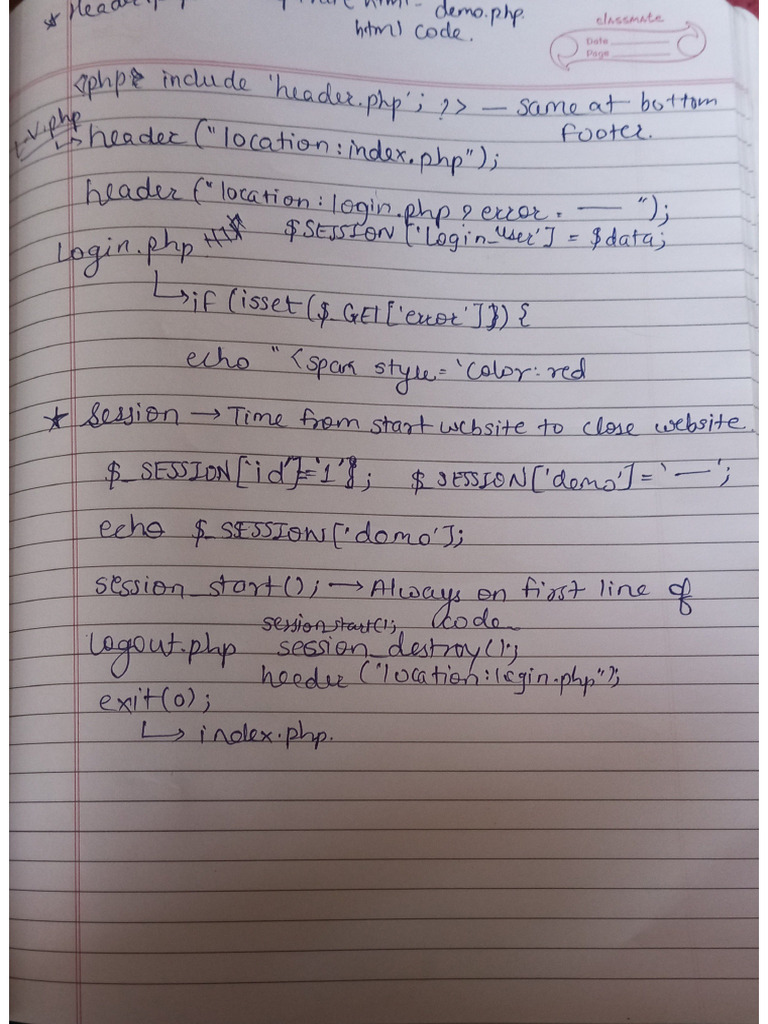 * Header.p html - demo.php.
html code.
classmate
Date
Page
<php include 'header.php'; ?> — same at bottom
footer.
v.php
↳ header ("location:index.php");
header ("location:login.php ? error = — ");
login.php $SESSION ['login_user'] = $data;
↳ if (isset($_GET['error'])) {
echo "<span style='color:red
* Session → Time from start website to close website.
$_SESSION['id']='1'; $_SESSION['demo']='—';
echo $_SESSION['domo'];
session_start(); → Always on first line of
session start(); code
logout.php session_destroy();
heeder ("location:login.php");
exit(0);
↳ index.php.